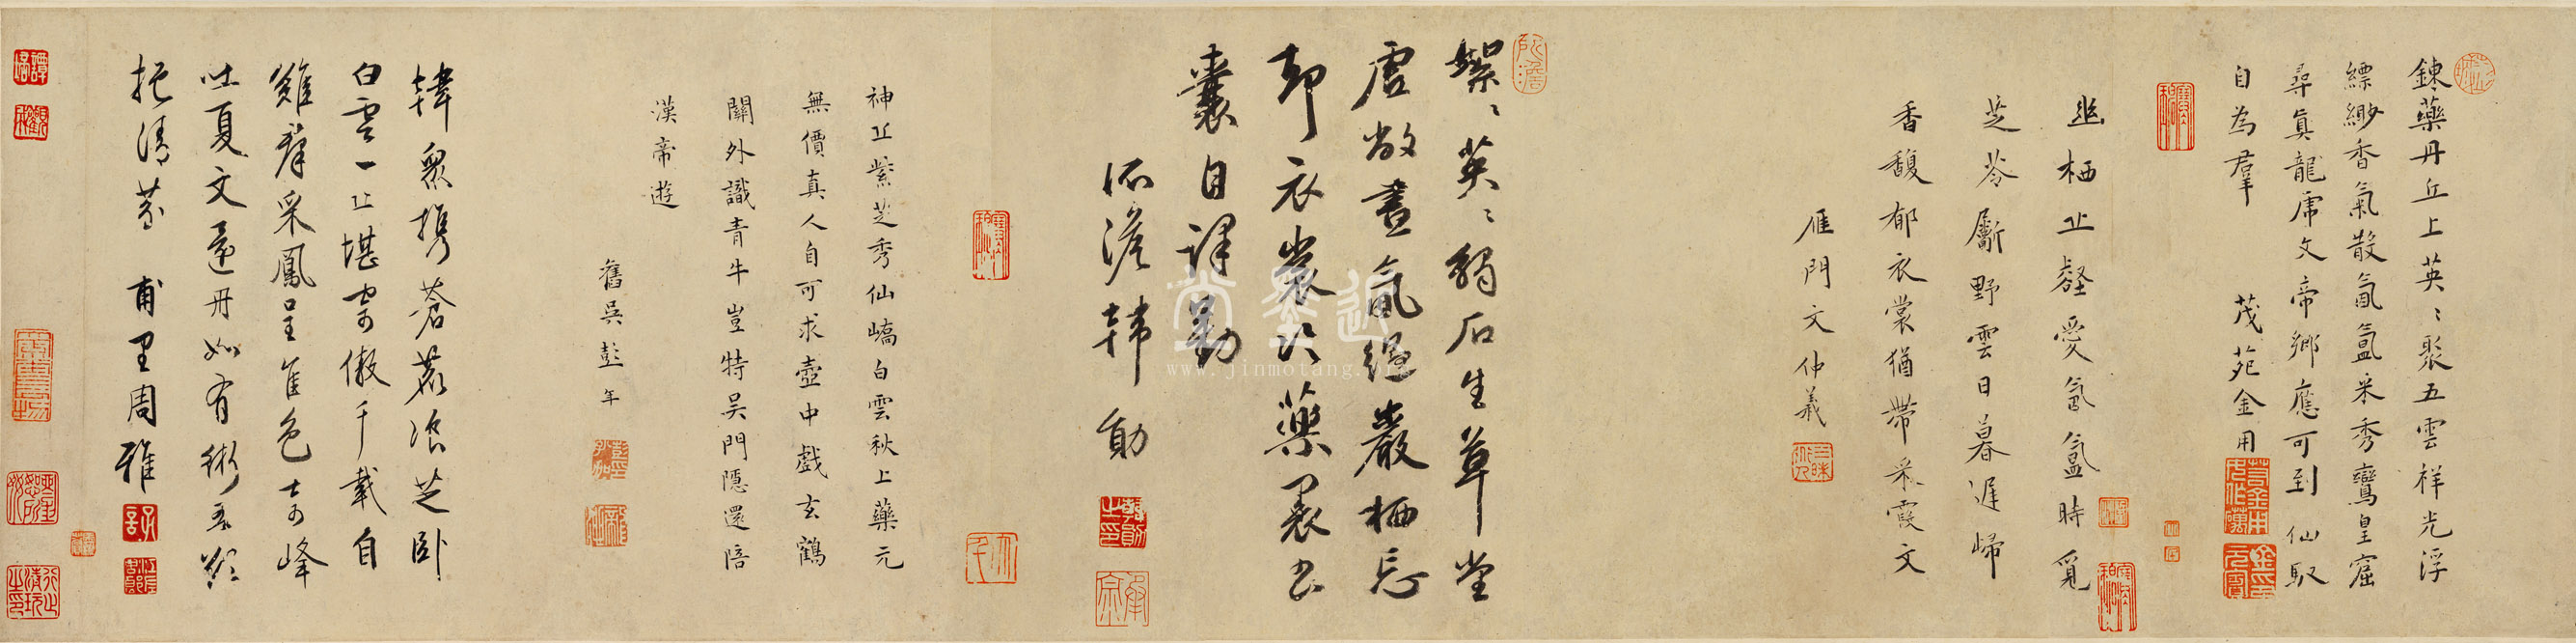 鍊藥丹丘上英〻聚五雲祥光浮
縹緲香氣散氤氳采秀鸞皇窟
尋真龍席文帝鄉應可到仙馭
自為羣 茂苑金用
幽栖止壑愛氤氳時覓
芝苓斸野雲日暮遲歸
香馥郁衣裳猶帶采霞文
雁門文仲義
絮〻英〻觸石生草堂
虛敞晝氤氳巖栖忘
却衣裳冷藥裹書
囊自課勤
沂澹韓勛
神丘紫芝秀仙嶠白雲秋上藥元
無價真人自可求壺中戲玄鶴
關外識青牛豈特吳門隱還陪
漢帝遊
舊吳彭年
韓眾攜蒼鹿飡芝臥
白雲一丘堪寄傲千載自
難羣采鳳呈雀色奇峰
吐夏文還丹如有術吾欲
挹清芬 甫里周雅
近墨堂
www.jinmotang.org